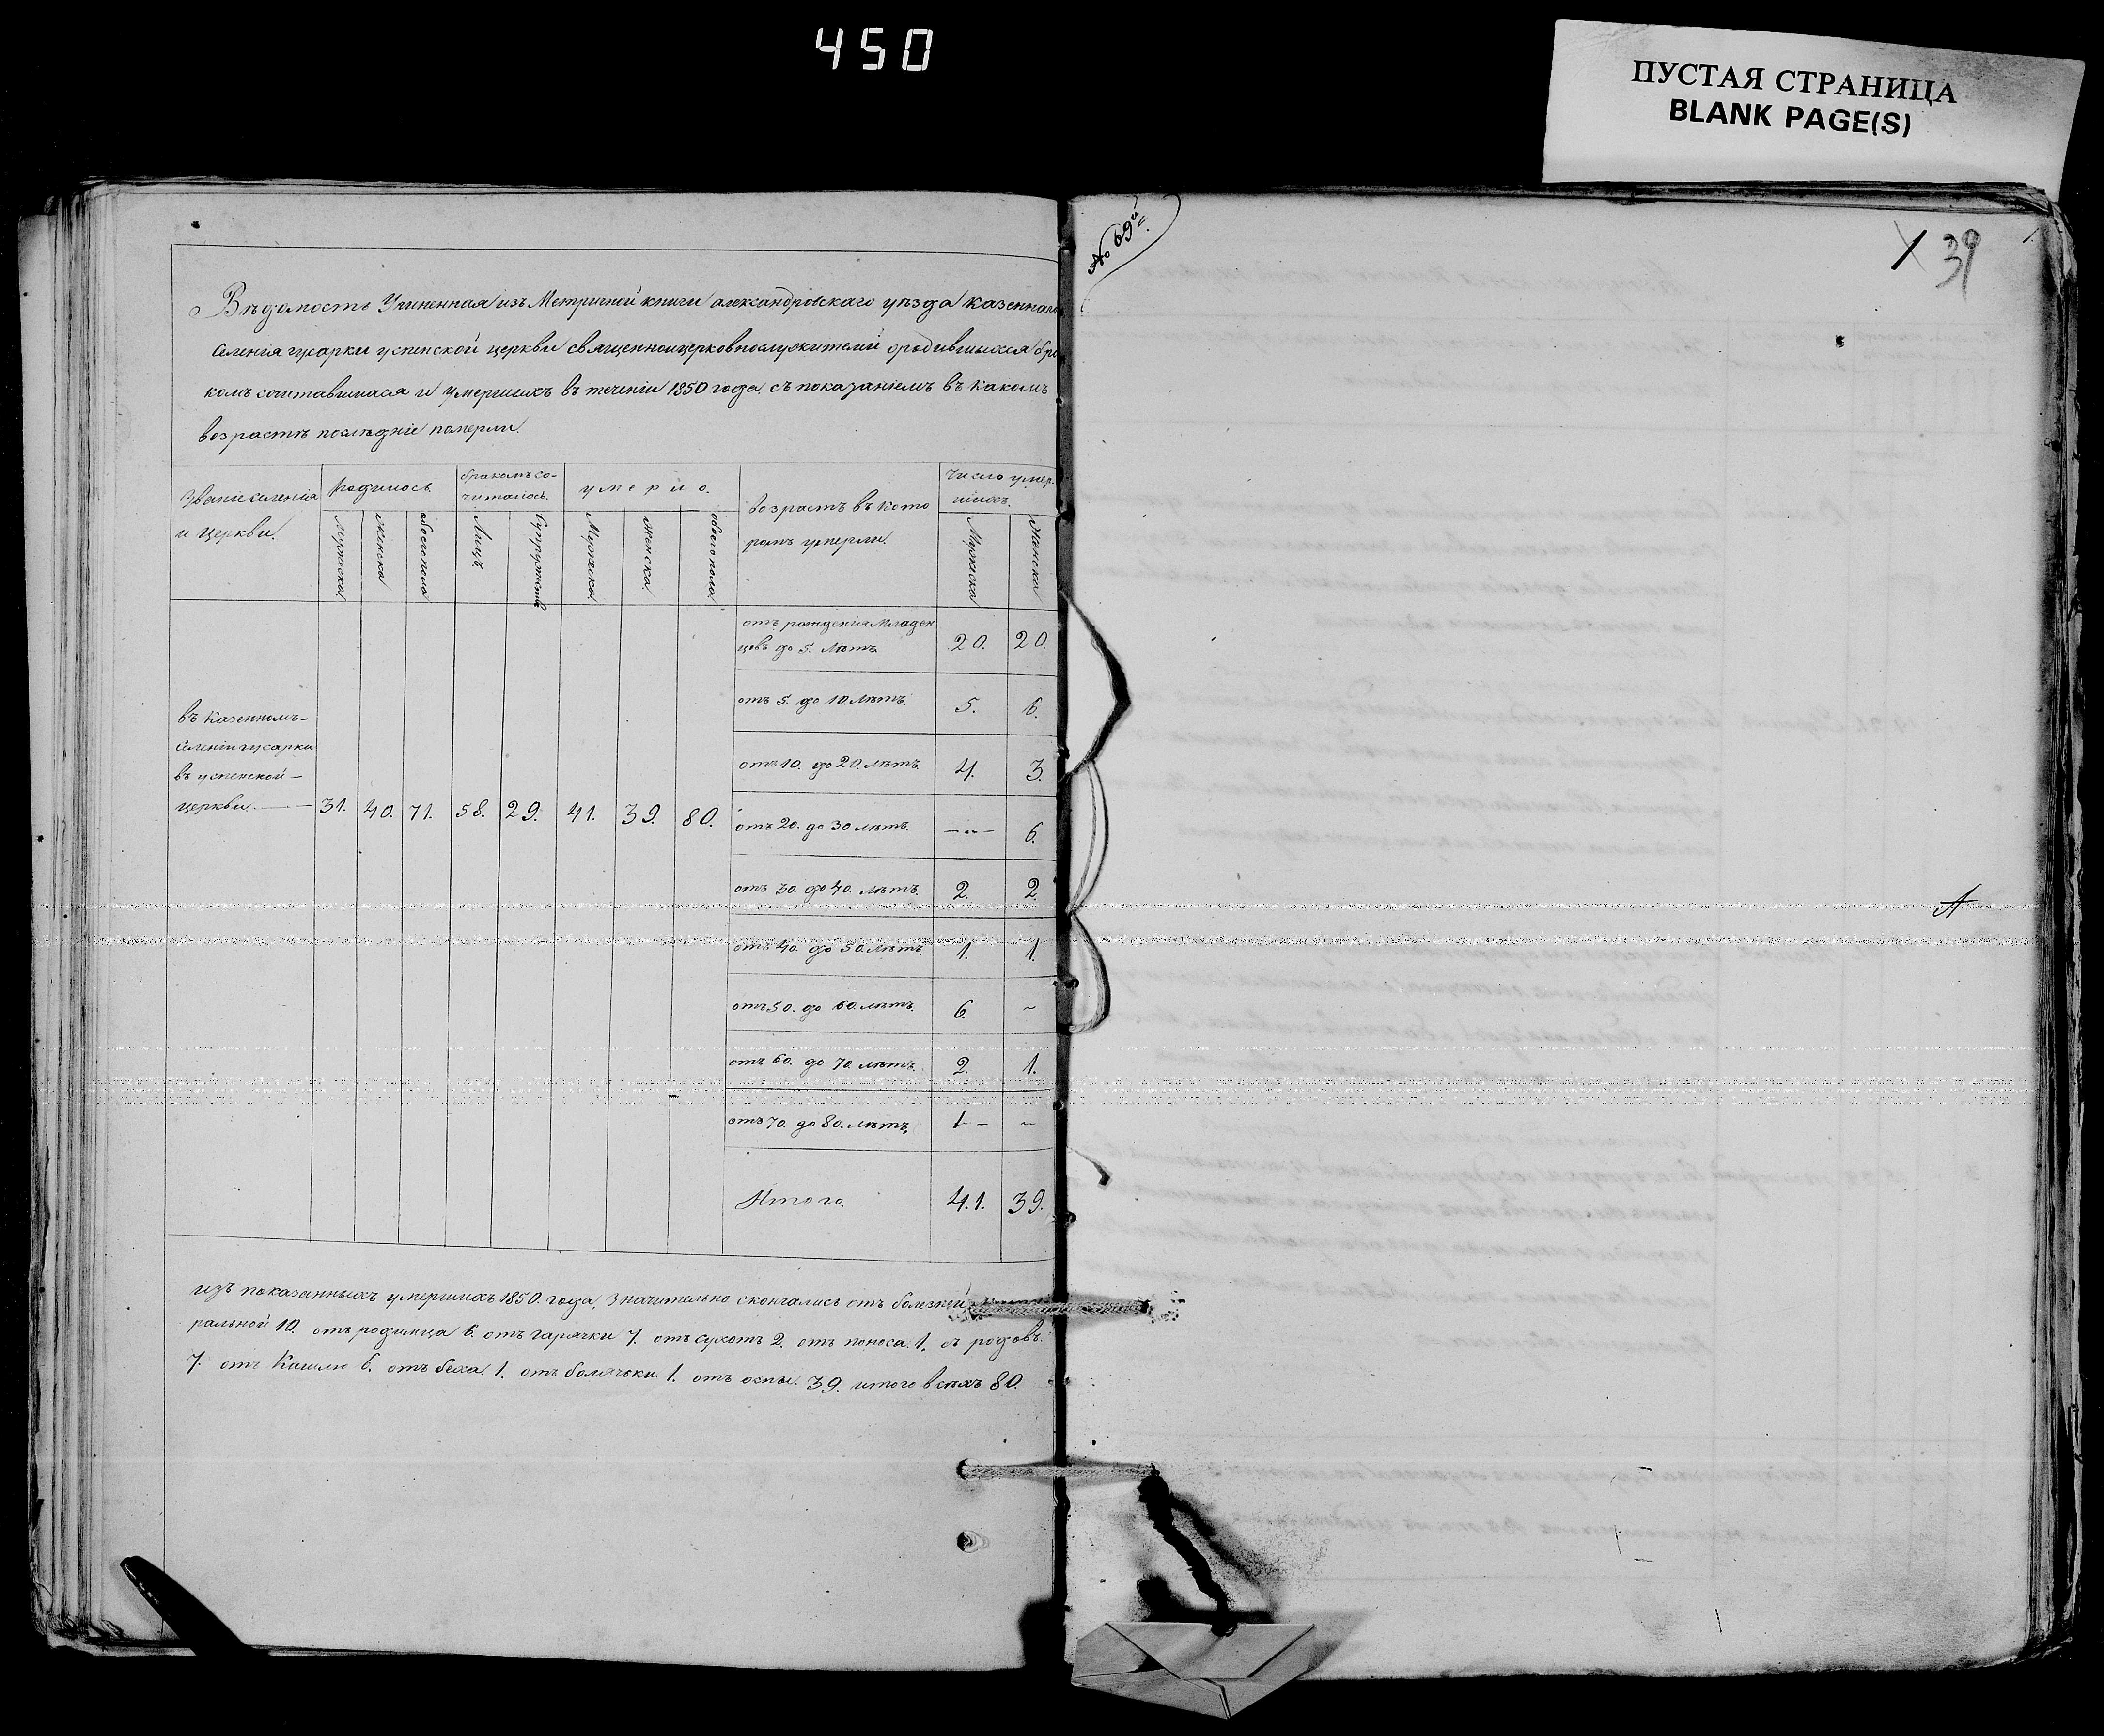 450
ПУСТАЯ СТРАНИЦА
BLANK PAGE(S)
Вѣдомость Учиненная изъ Метричной книги александровскаго уѣзда казеннаго
селенія гусарки успенской церкви священноицерковнослужителей ородившихся бра
комъ сочитавшихся и умершихъ въ теченіи 1850 года съ показаніемъ въ какомъ
возрастѣ послѣдніе померли.
Званіе селенія
и церкви.
родилось
Мужеска
женска
обоего пола
бракомъ со-
читалось.
Лицъ
Супружествъ
умерло.
Мужеска
женска
обоего пола
возрастъ въ кото
ромъ умерли.
Число умер-
шихъ.
Мужеска
женска
въ казенномъ-
селеніи гусарки
въ успенской-
церкви. 31. 40. 71. 58. 29. 41. 39. 80.
отъ рожденія младен
цевъ до 5. лѣтъ 20. 20.
отъ 5. до 10. лѣтъ. 5. 6.
отъ 10. до 20. лѣтъ. 4. 3.
отъ 20. до 30 лѣтъ. —"— 6.
отъ 30. до 40. лѣтъ. 2. 2.
отъ 40. до 50. лѣтъ. 1. 1.
отъ 50. до 60. лѣтъ. 6. ~
отъ 60. до 70. лѣтъ. 2. 1.
отъ 70. до 80. лѣтъ, 1 — ~
Итого. 41. 39.
изъ показанныхъ умершихъ 1850. года, значительно скончались отъ болезней
ральной 10. отъ родимца 6. отъ гарячки 7. отъ сухотъ 2. отъ поноса 1. съ родовъ.
7. отъ Кашлю 6. отъ беха 1. отъ болячьки 1. отъ оспы. 39. итого всѣхъ 80.
№ 69й
1 39
А